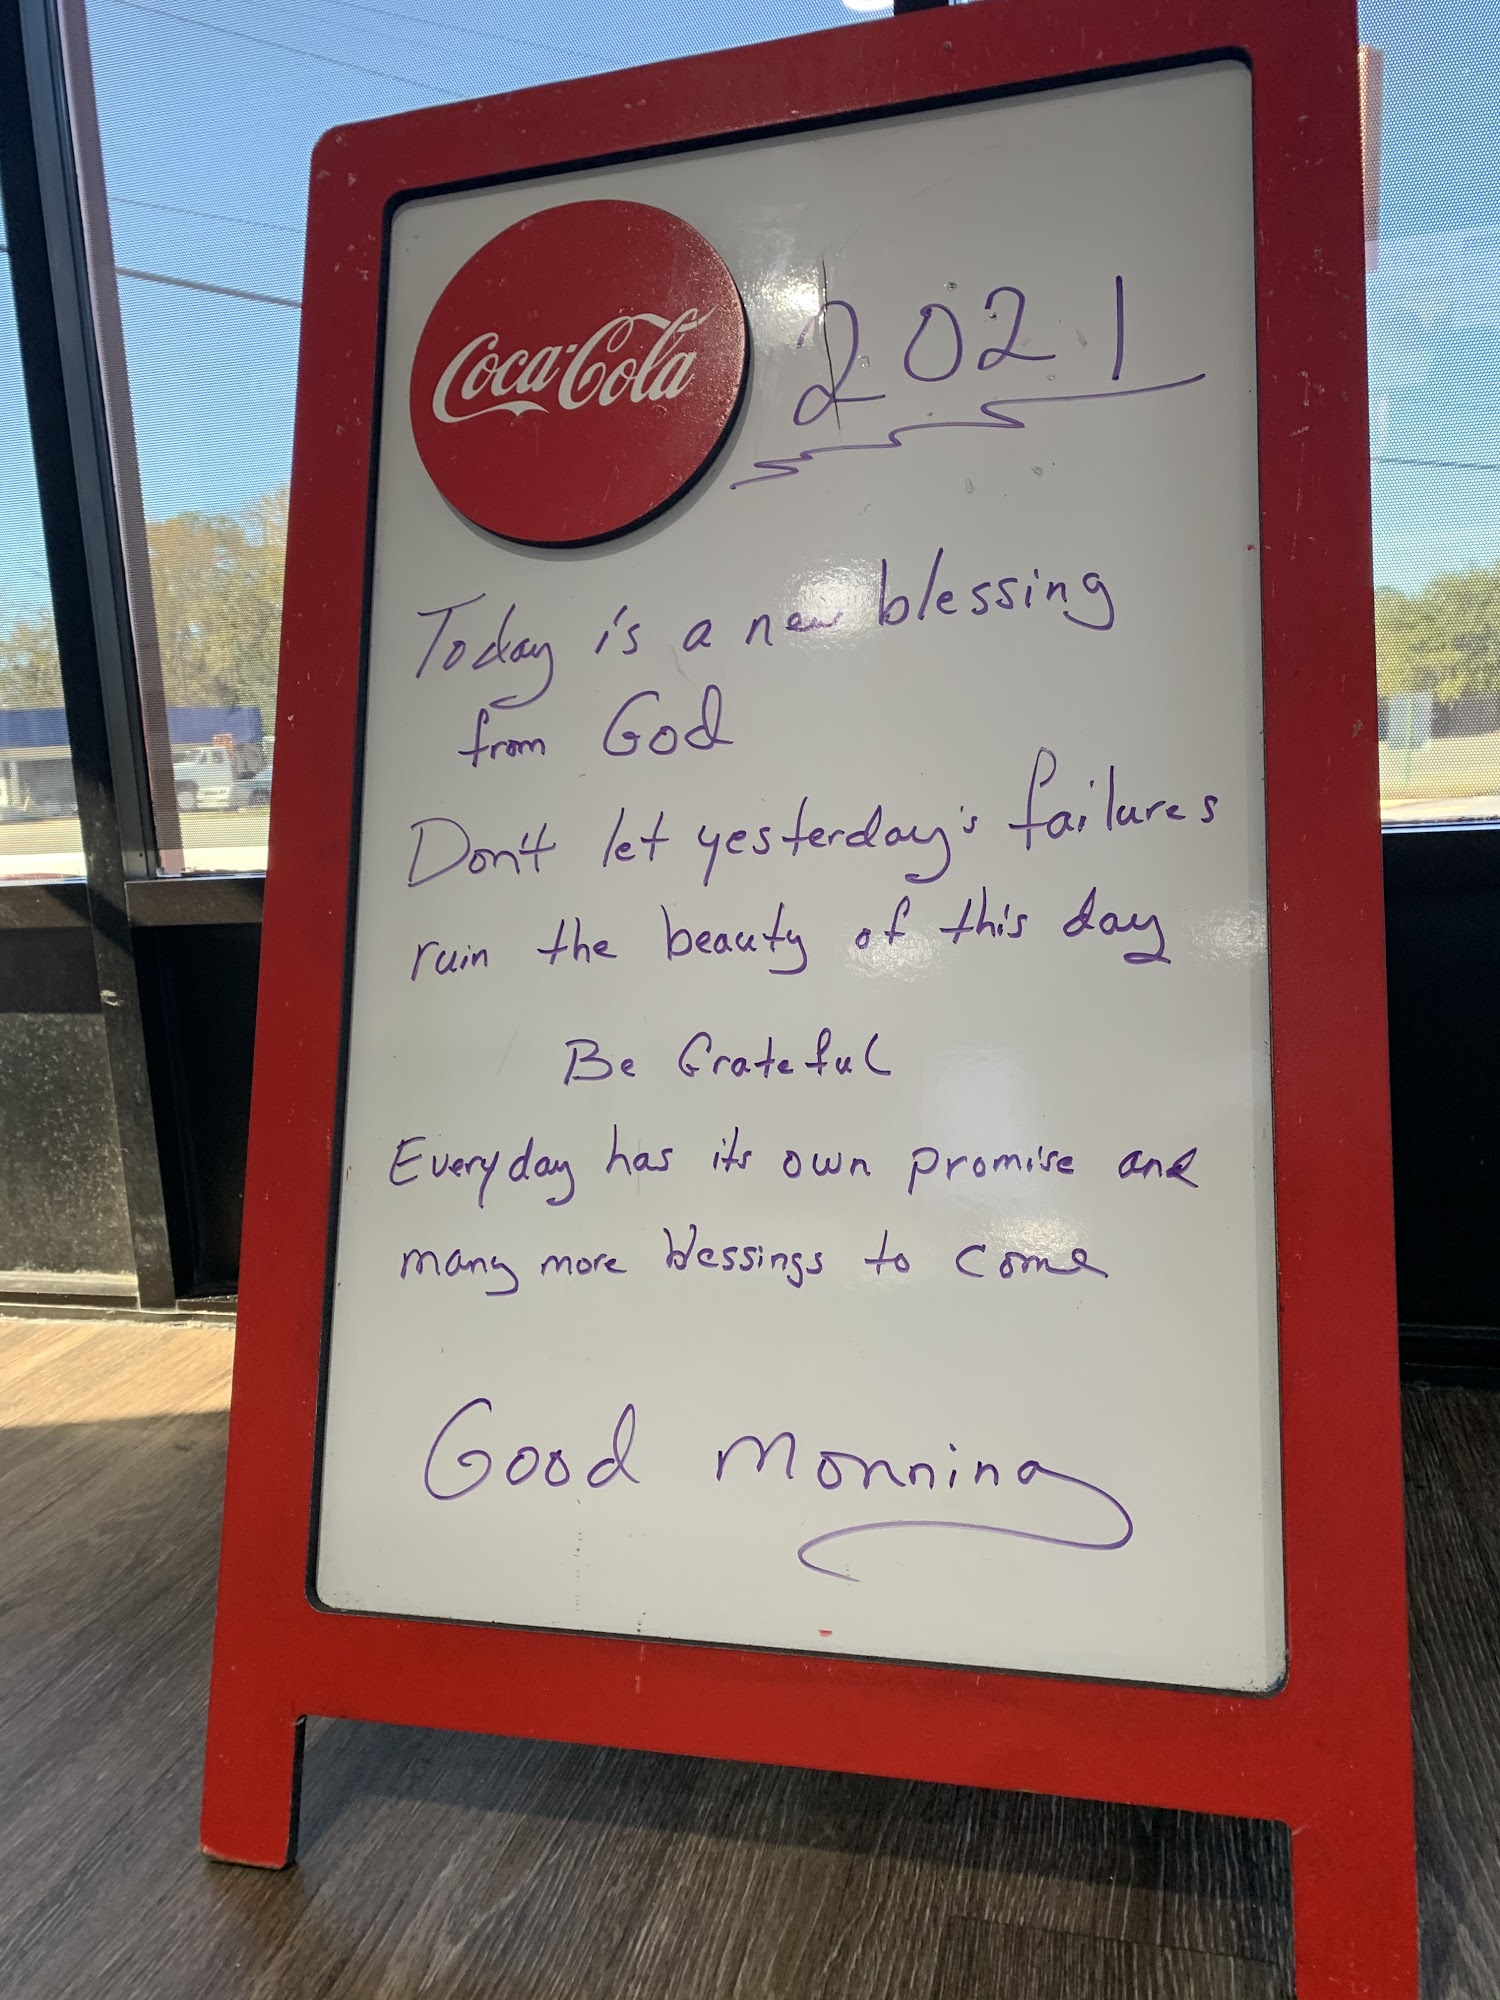 Coca-Cola
2021
Today is a new blessing
from God
Don't let yesterday's failures
ruin the beauty of this day
Be Grateful
Everyday has its own promise and
many more blessings to come
Good Monning